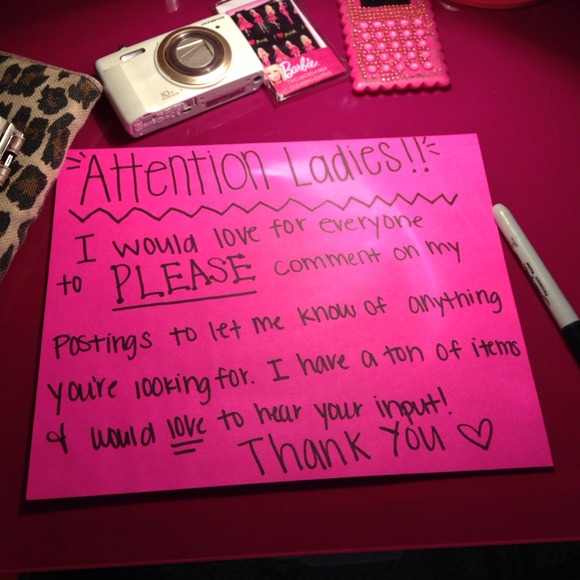 OLYMPUS
10x
Barbie
"Attention Ladies!!"
I would love for everyone
to PLEASE comment on my
postings to let me know of anything
you're looking for. I have a ton of items
& would love to hear your input!
Thank You ♡